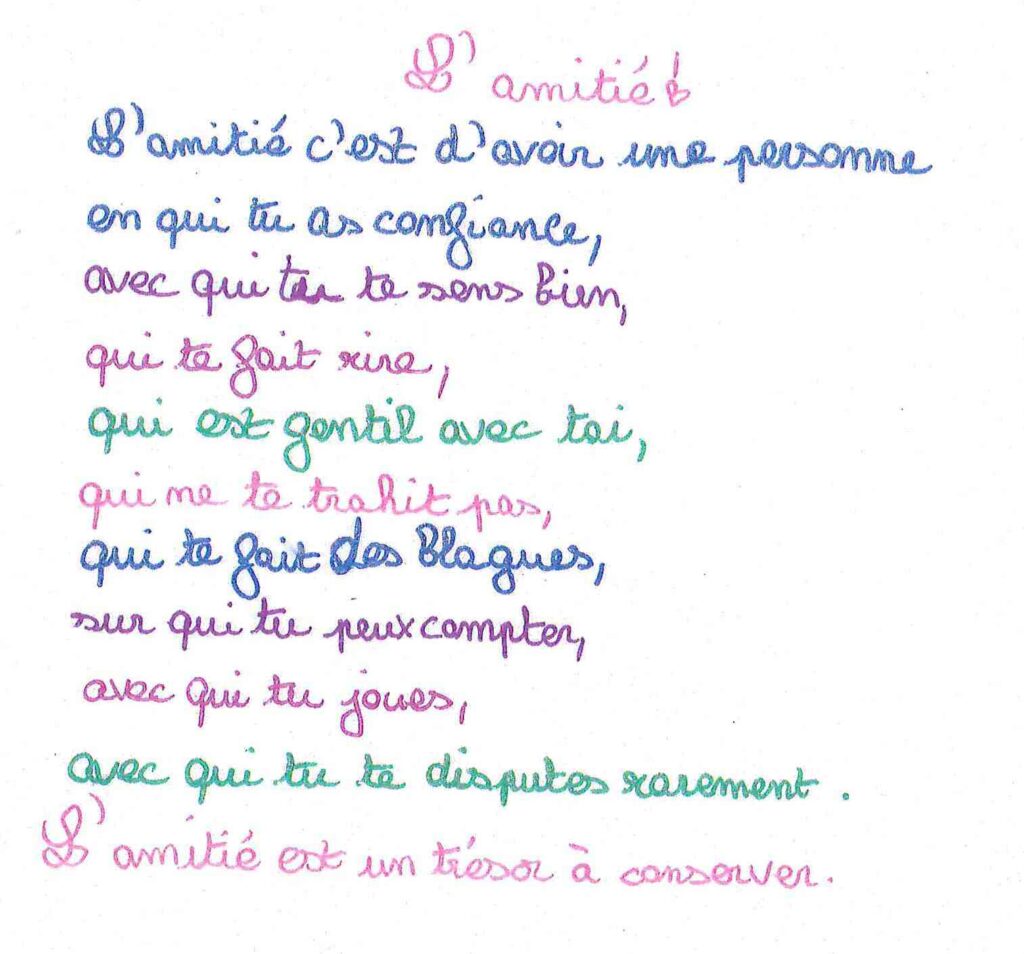 L'amitié !
L'amitié c'est d'avoir une personne
en qui tu as confiance,
avec qui tu te sens bien,
qui te fait rire,
qui est gentil avec toi,
qui ne te trahit pas,
qui te fait des blagues,
sur qui tu peux compter,
avec qui tu joues,
avec qui tu te disputes rarement.
L'amitié est un trésor à conserver.